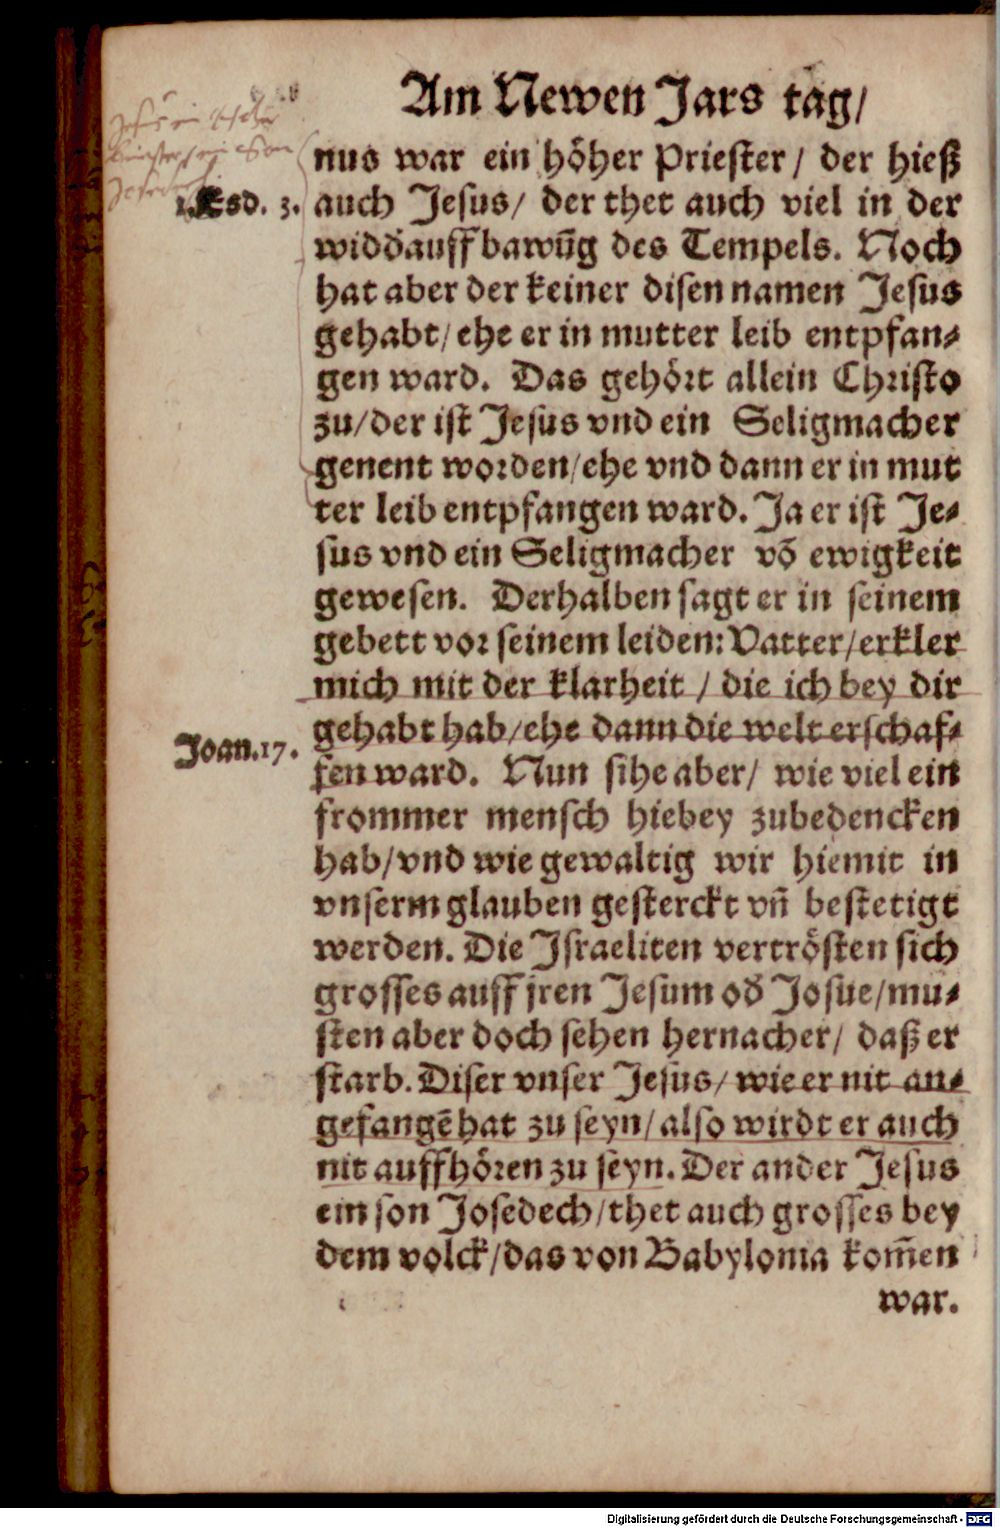 Am Newen Jars tag/
nus war ein höher Priester/ der hieß
1. Esd. 3.
auch Jesus/ der thet auch viel in der
widd̄auffbawūg des Tempels. Noch
hat aber der keiner disen namen Jesus
gehabt/ ehe er in mutter leib entpfan⸗
gen ward. Das gehört allein Christo
zu/ der ist Jesus vnd ein Seligmacher
genent worden/ ehe vnd dann er in mut
ter leib entpfangen ward. Ja er ist Je⸗
sus vnd ein Seligmacher vō ewigkeit
gewesen. Derhalben sagt er in seinem
gebett vor seinem leiden: Vatter/ erkler
mich mit der klarheit / die ich bey dir
gehabt hab/ ehe dann die welt erschaf⸗
Joan. 17.
fen ward. Nun sihe aber/ wie viel ein
frommer mensch hiebey zubedencken
hab/ vnd wie gewaltig wir hiemit in
vnserm glauben gesterckt vn̄ bestetigt
werden. Die Israeliten vertrösten sich
grosses auff jren Jesum od̄ Josue/ mu⸗
sten aber doch sehen hernacher/ daß er
starb. Diser vnser Jesus/ wie er nit an⸗
gefangē hat zu seyn/ also wirdt er auch
nit auffhören zu seyn. Der ander Jesus
ein son Josedech/ thet auch grosses bey
dem volck/ das von Babylonia kom̄en
war.
Digitalisierung gefördert durch die Deutsche Forschungsgemeinschaft - DFG